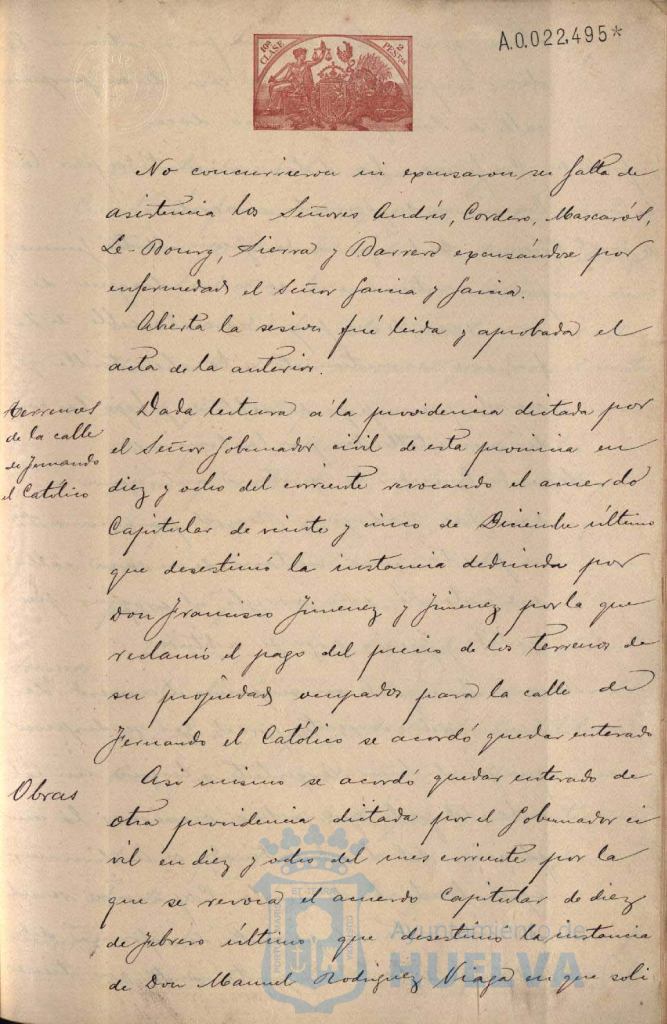 10ª CLASE 2 PESETAS
A.0.022,495*
No concurrieron ni excusaron su falta de
asistencia los Señores Andrés, Cordero, Mascarós,
Le-Bourg, Sierra y Barrero excusándose por
enfermedad el Señor Garcia y Garcia.
Abierta la sesion fué leida y aprobada el
acta de la anterior.
Terrenos
de la calle
de Fernando
el Católico
Dada lectura á la providencia dictada por
el Señor Gobernador civil de esta provincia en
diez y ocho del corriente revocando el acuerdo
Capitular de veinte y cinco de Diciembre último
que desestimó la instancia deducida por
Don Francisco Jimenez y Jimenez por la que
reclamó el pago del precio de los terrenos de
su propiedad ocupados para la calle de
Fernando el Católico se acordó quedar enterado
Obras
Asi mismo se acordó quedar enterado de
otra providencia dictada por el Gobernador ci
vil en diez y ocho del mes corriente por la
que se revoca el acuerdo Capitular de diez
de Febrero último que desestimo la instancia
de Don Manuel Rodriguez Viaga en que soli
Ayuntamiento de
HUELVA